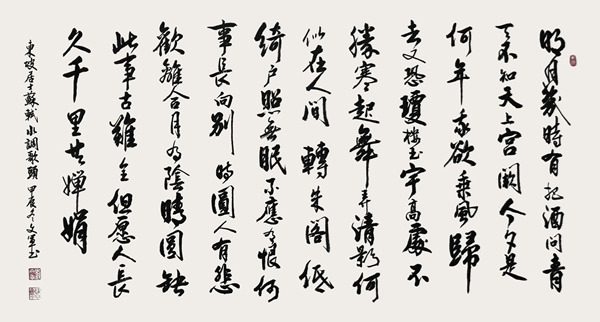 明月幾時有把酒問青
天不知天上宮闕今夕是
何年我欲乘風歸
去又恐瓊樓玉宇高處不
勝寒起舞弄清影何
似在人間轉朱閣低
綺戶照無眠不應有恨何
事長向別時圓人有悲
歡離合月有陰晴圓缺
此事古難全但愿人長
久千里共嬋娟
東坡居士蘇軾水調歌頭 甲辰冬文軍書